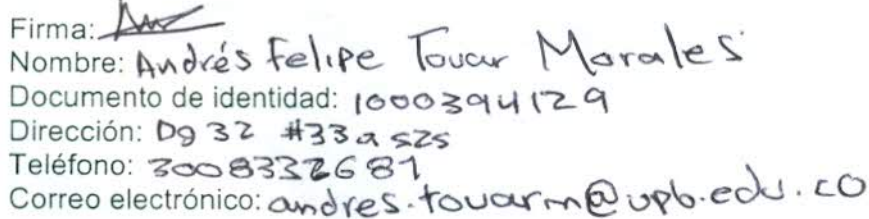 Firma:
Nombre: Andrés Felipe Tovar Morales
Documento de identidad: 1000394129
Dirección: Dg 32 #33a s25
Teléfono: 3008332681
Correo electrónico: andres.tovarm@upb.edu.co